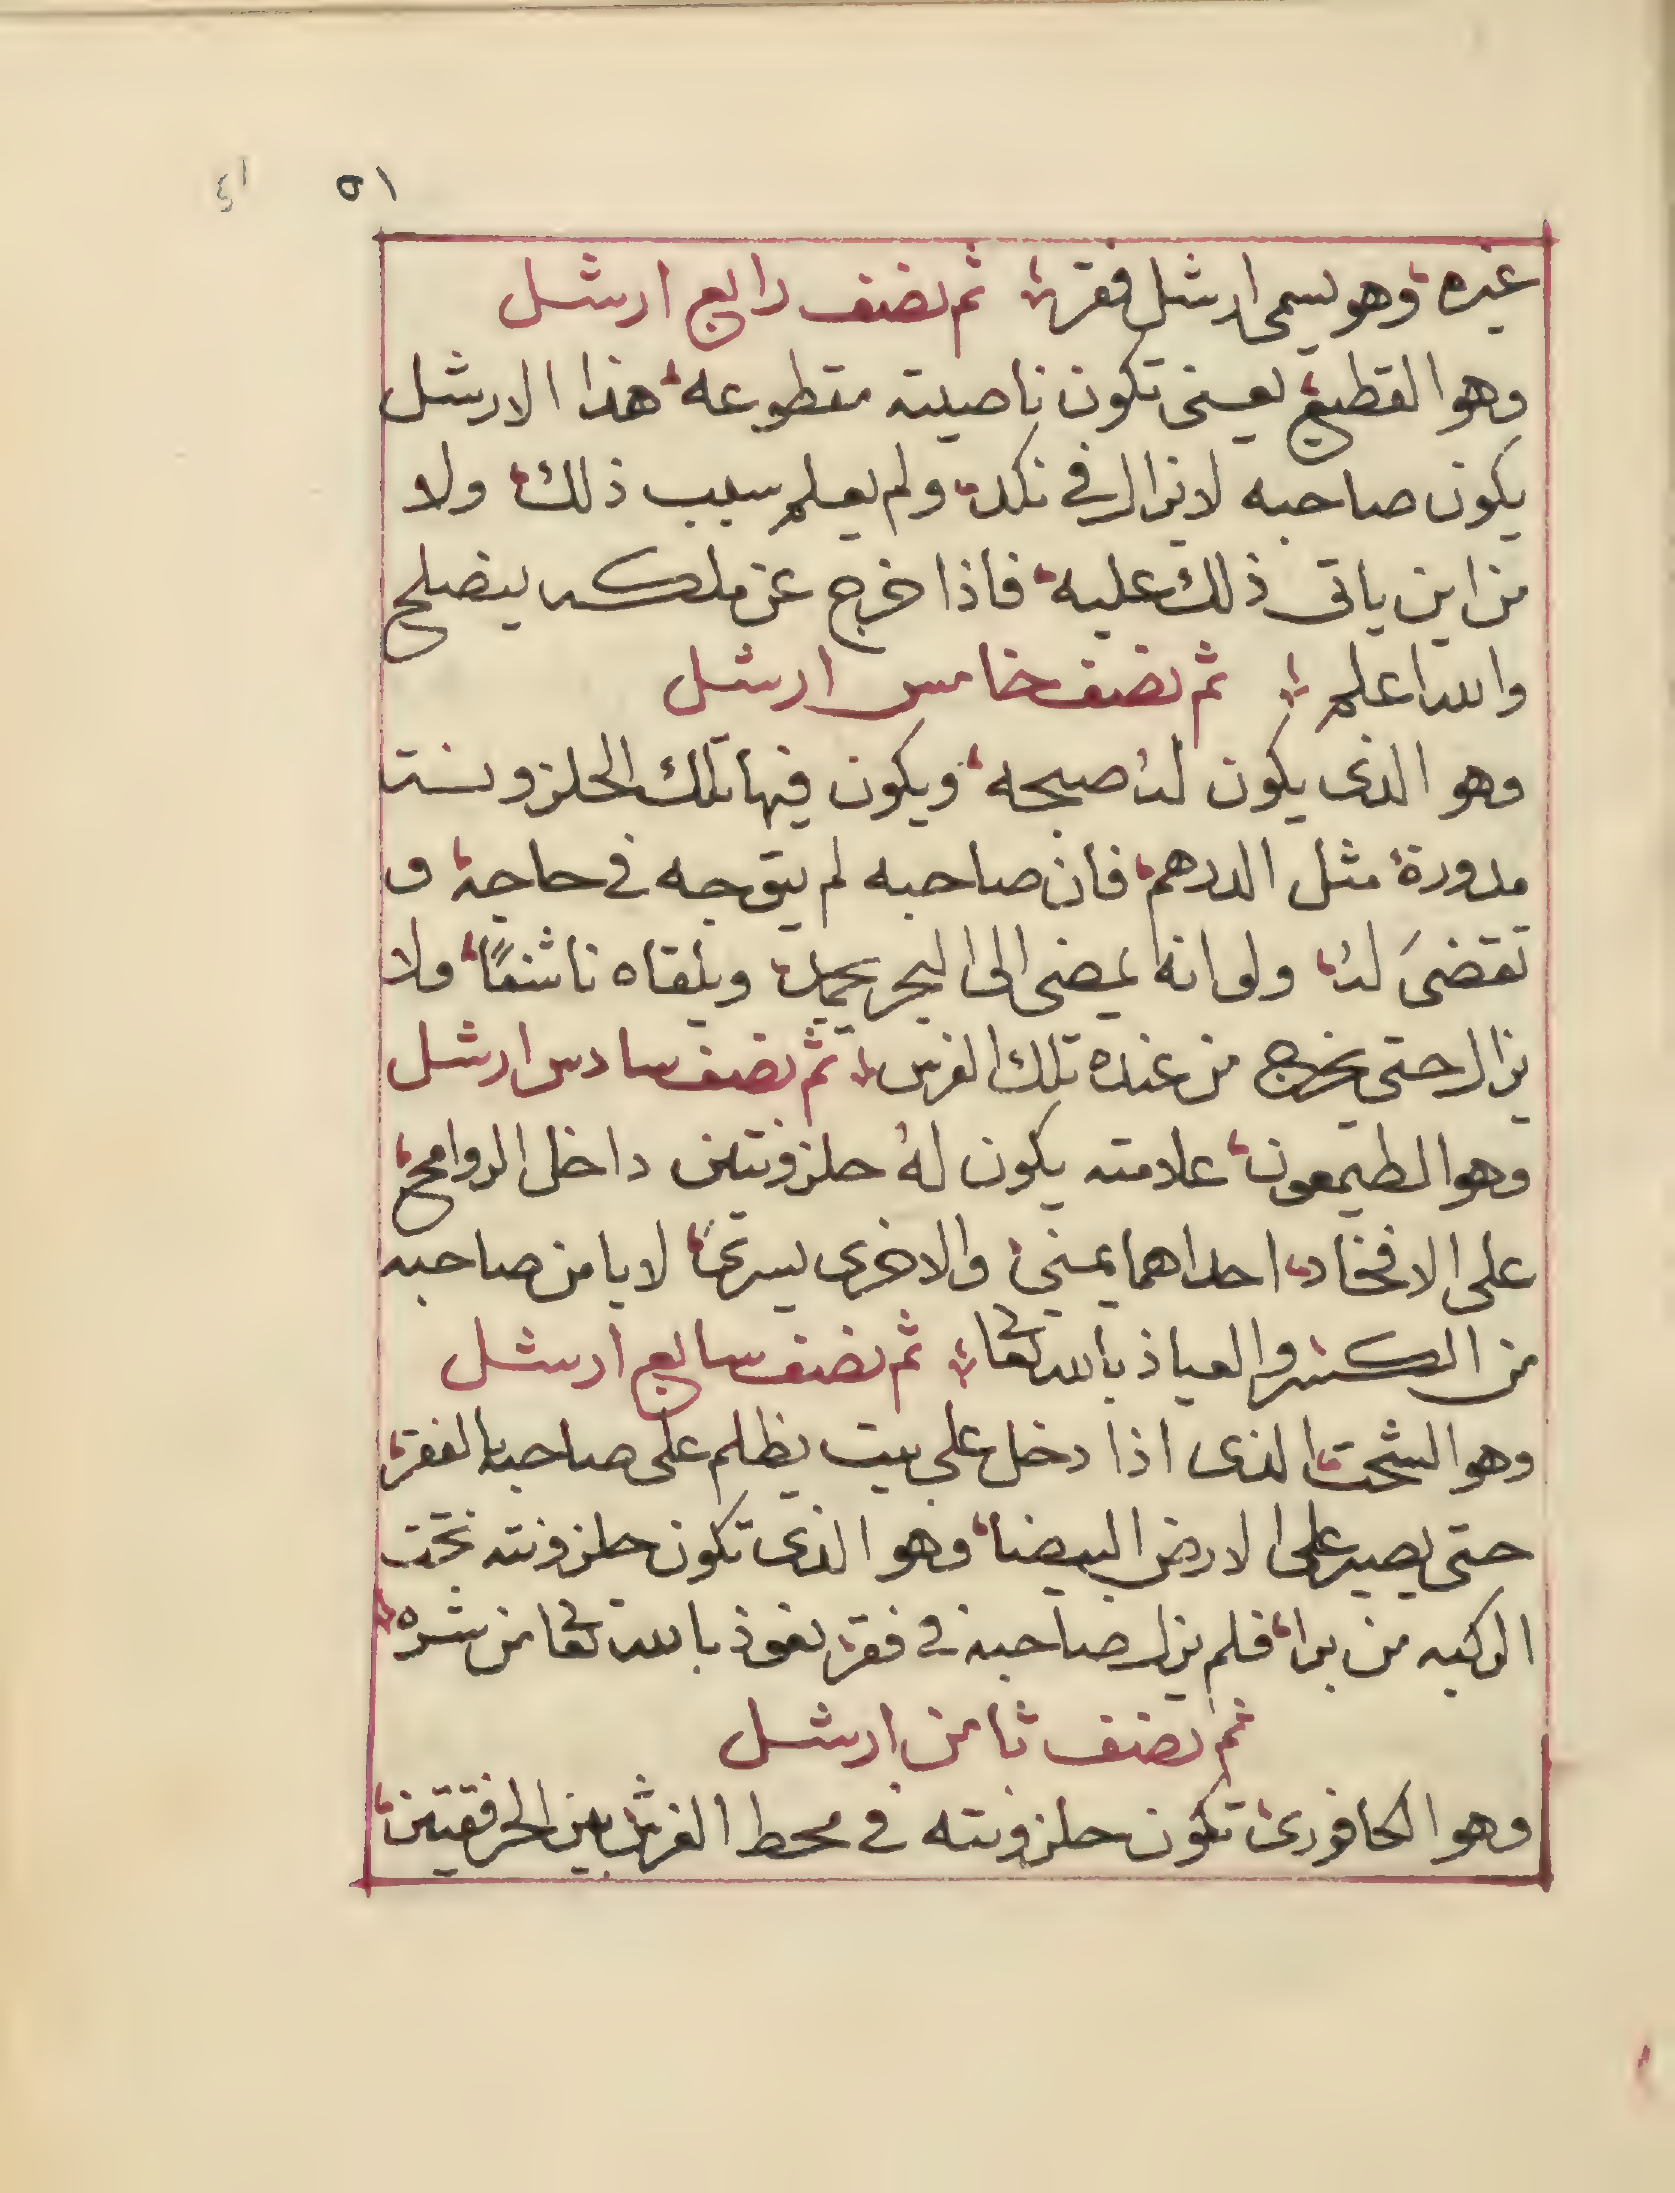 ٥١
غيره وهو يسمى ارشل فقر ثم نصنف رابع ارشل
وهو القطيع يعنى تكون ناصيته مقطوعه هذا الارشل
يكون صاحبه لا يزال في نكد ولم يعلم سبب ذلك ولا
من اين ياتى ذلك عليه فاذا خرج عن ملكه ينصلح
والله اعلم ثم نصنف خامس ارشل
وهو الذى يكون له صبحه ويكون فيها تلك الحلزونت
مدورة مثل الدرهم فان صاحبه لم يتوجه في حاجة و
تقضىَ لهُ ولو انه يمضى الى البحر يجد ويلقاه ناشفًا ولا
يزال حتى يخرج من عنده تلك الفرس ثم نصنف سادس ارشل
وهو الطيمعون علامته يكون لهُ حلزونتين داخل الروامح
على الافخاد احداهما يمنى والاخرى يسرى لا يامن صاحبه
من الكسر والعياذ بالله تعا في ثم نصنف سابع ارشل
وهو الشحت الذى اذا دخل على بيت يظلم على صاحبه الفقر
حتى يصير على الارض البيضا وهو الذى تكون حلزونته تحت
الركبه من برا فلم يزل صاحبه في فقر نعوذ بالله تعا من شره
ثم نصنف ثامن ارشل
وهو الكافورى تكون حلزونته في محط الفرش بين الحرقفتين